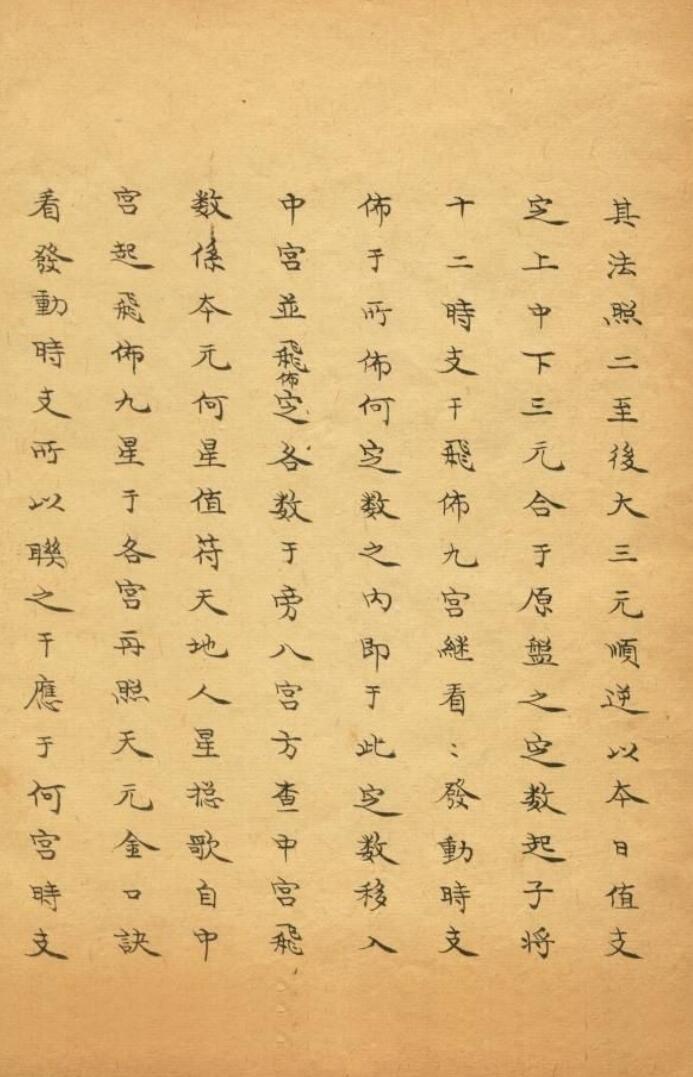 其法照二至後大三元順逆以本日值支
定上中下三元合于原盤之定数起子将
十二時支干飛佈九宮継看：發動時支
佈于所佈何定数之内即于此定数移入
中宮並飛佈定各数于旁八宮方查中宮飛
数係本元何星值符天地人星捴歌自中
宮起飛佈九星于各宮再照天元金口訣
看發動時支所以聨之干應于何宮時支